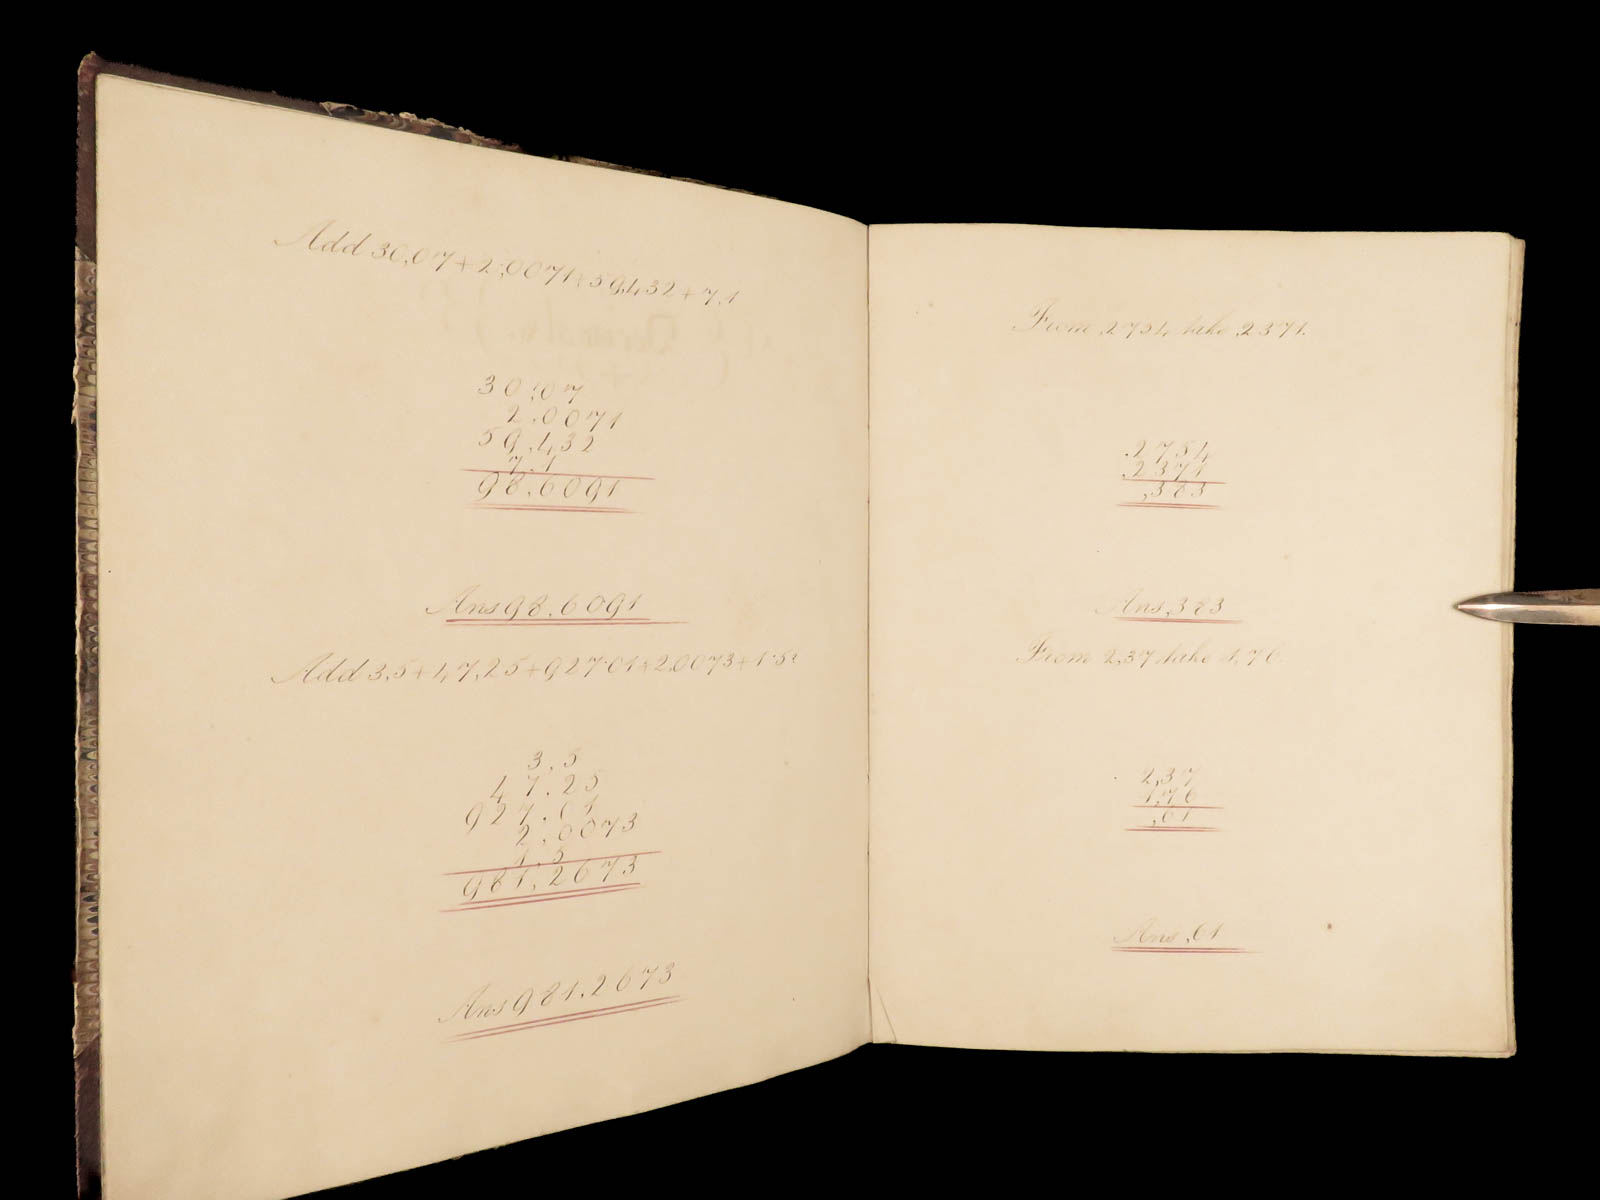 Add 30,07+2,0071+59,432+7,1
30,07
2.0071
59.432
7.1
98.6091
Ans 98.6091
Add 3,5+47,25+927.01+2.0073+1.5
3.5
47.25
927.01
2.0073
1.5
981,2673
Ans 981.2673
From ,2754 take ,2371.
.2754
.2371
,383
Ans ,383
From 2,37 take 1,76
2,37
1,76
,61
Ans ,61